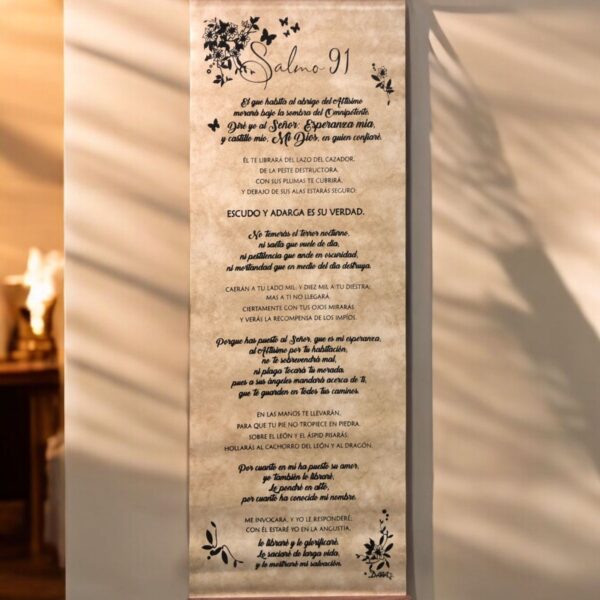 Salmo 91
El que habita al abrigo del Altísimo
morará bajo la sombra del Omnipotente.
Diré yo al Señor: Esperanza mía,
y castillo mío, Mi Dios, en quien confiaré.
ÉL TE LIBRARÁ DEL LAZO DEL CAZADOR,
DE LA PESTE DESTRUCTORA.
CON SUS PLUMAS TE CUBRIRÁ,
Y DEBAJO DE SUS ALAS ESTARÁS SEGURO:
ESCUDO Y ADARGA ES SU VERDAD.
No temerás el terror nocturno,
ni saeta que vuele de día,
ni pestilencia que ande en oscuridad,
ni mortandad que en medio del día destruya.
CAERÁN A TU LADO MIL, Y DIEZ MIL A TU DIESTRA;
MAS A TI NO LLEGARÁ.
CIERTAMENTE CON TUS OJOS MIRARÁS
Y VERÁS LA RECOMPENSA DE LOS IMPÍOS.
Porque has puesto al Señor, que es mi esperanza,
al Altísimo por tu habitación,
no te sobrevendrá mal,
ni plaga tocará tu morada.
pues a sus ángeles mandará acerca de ti,
que te guarden en todos tus caminos.
EN LAS MANOS TE LLEVARÁN,
PARA QUE TU PIE NO TROPIECE EN PIEDRA.
SOBRE EL LEÓN Y EL ÁSPID PISARÁS;
HOLLARÁS AL CACHORRO DEL LEÓN Y AL DRAGÓN.
Por cuanto en mí ha puesto su amor,
yo también lo libraré,
Le pondré en alto,
por cuanto ha conocido mi nombre.
ME INVOCARÁ, Y YO LE RESPONDERÉ;
CON ÉL ESTARÉ YO EN LA ANGUSTIA,
lo libraré y le glorificaré.
Le saciaré de larga vida,
y le mostraré mi salvación.